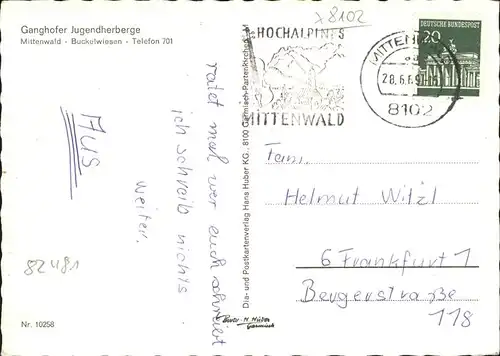 Ganghofer Jugendherberge
Mittenwald - Buckelwiesen - Telefon 701
8102
HOCHALPINES
MITTENWALD
MITTENW
28.6.6
8102
DEUTSCHE BUNDESPOST
20
Aus
ratet mal wer euch schreibt
ich schreib nichts
weiter.
82481
Dia- und Postkartenverlag Hans Huber KG · 8100 Garmisch-Partenkirchen
Fam.
Helmut Witzl
6 Frankfurt 1
Bergerstraße
118
Nr. 10258
Garmisch